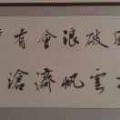 破浪會有
雲帆濟滄